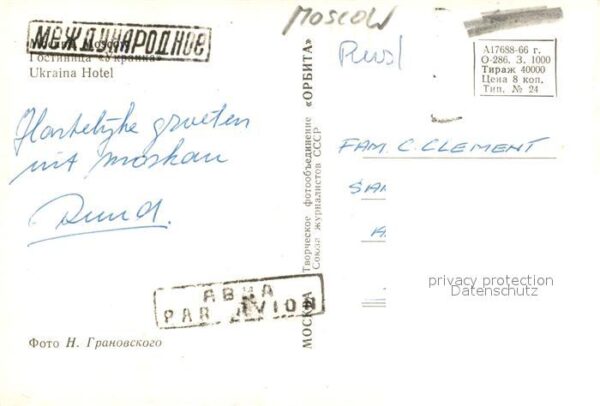 MOSCOW
МЕЖДУНАРОДНОЕ
Гостиница «Украина»
Ukraina Hotel
Hartelijke groeten
uit Moskau
FAM. C. CLEMENT
А17688-66 г.
О-286. З. 1000
Тираж 40000
Цена 8 коп.
Тип. № 24
МОСКВА Творческое фотообъединение «ОРБИТА»
Союза журналистов СССР
privacy protection
Datenschutz
АВИА
PAR AVION
Фото Н. Грановского